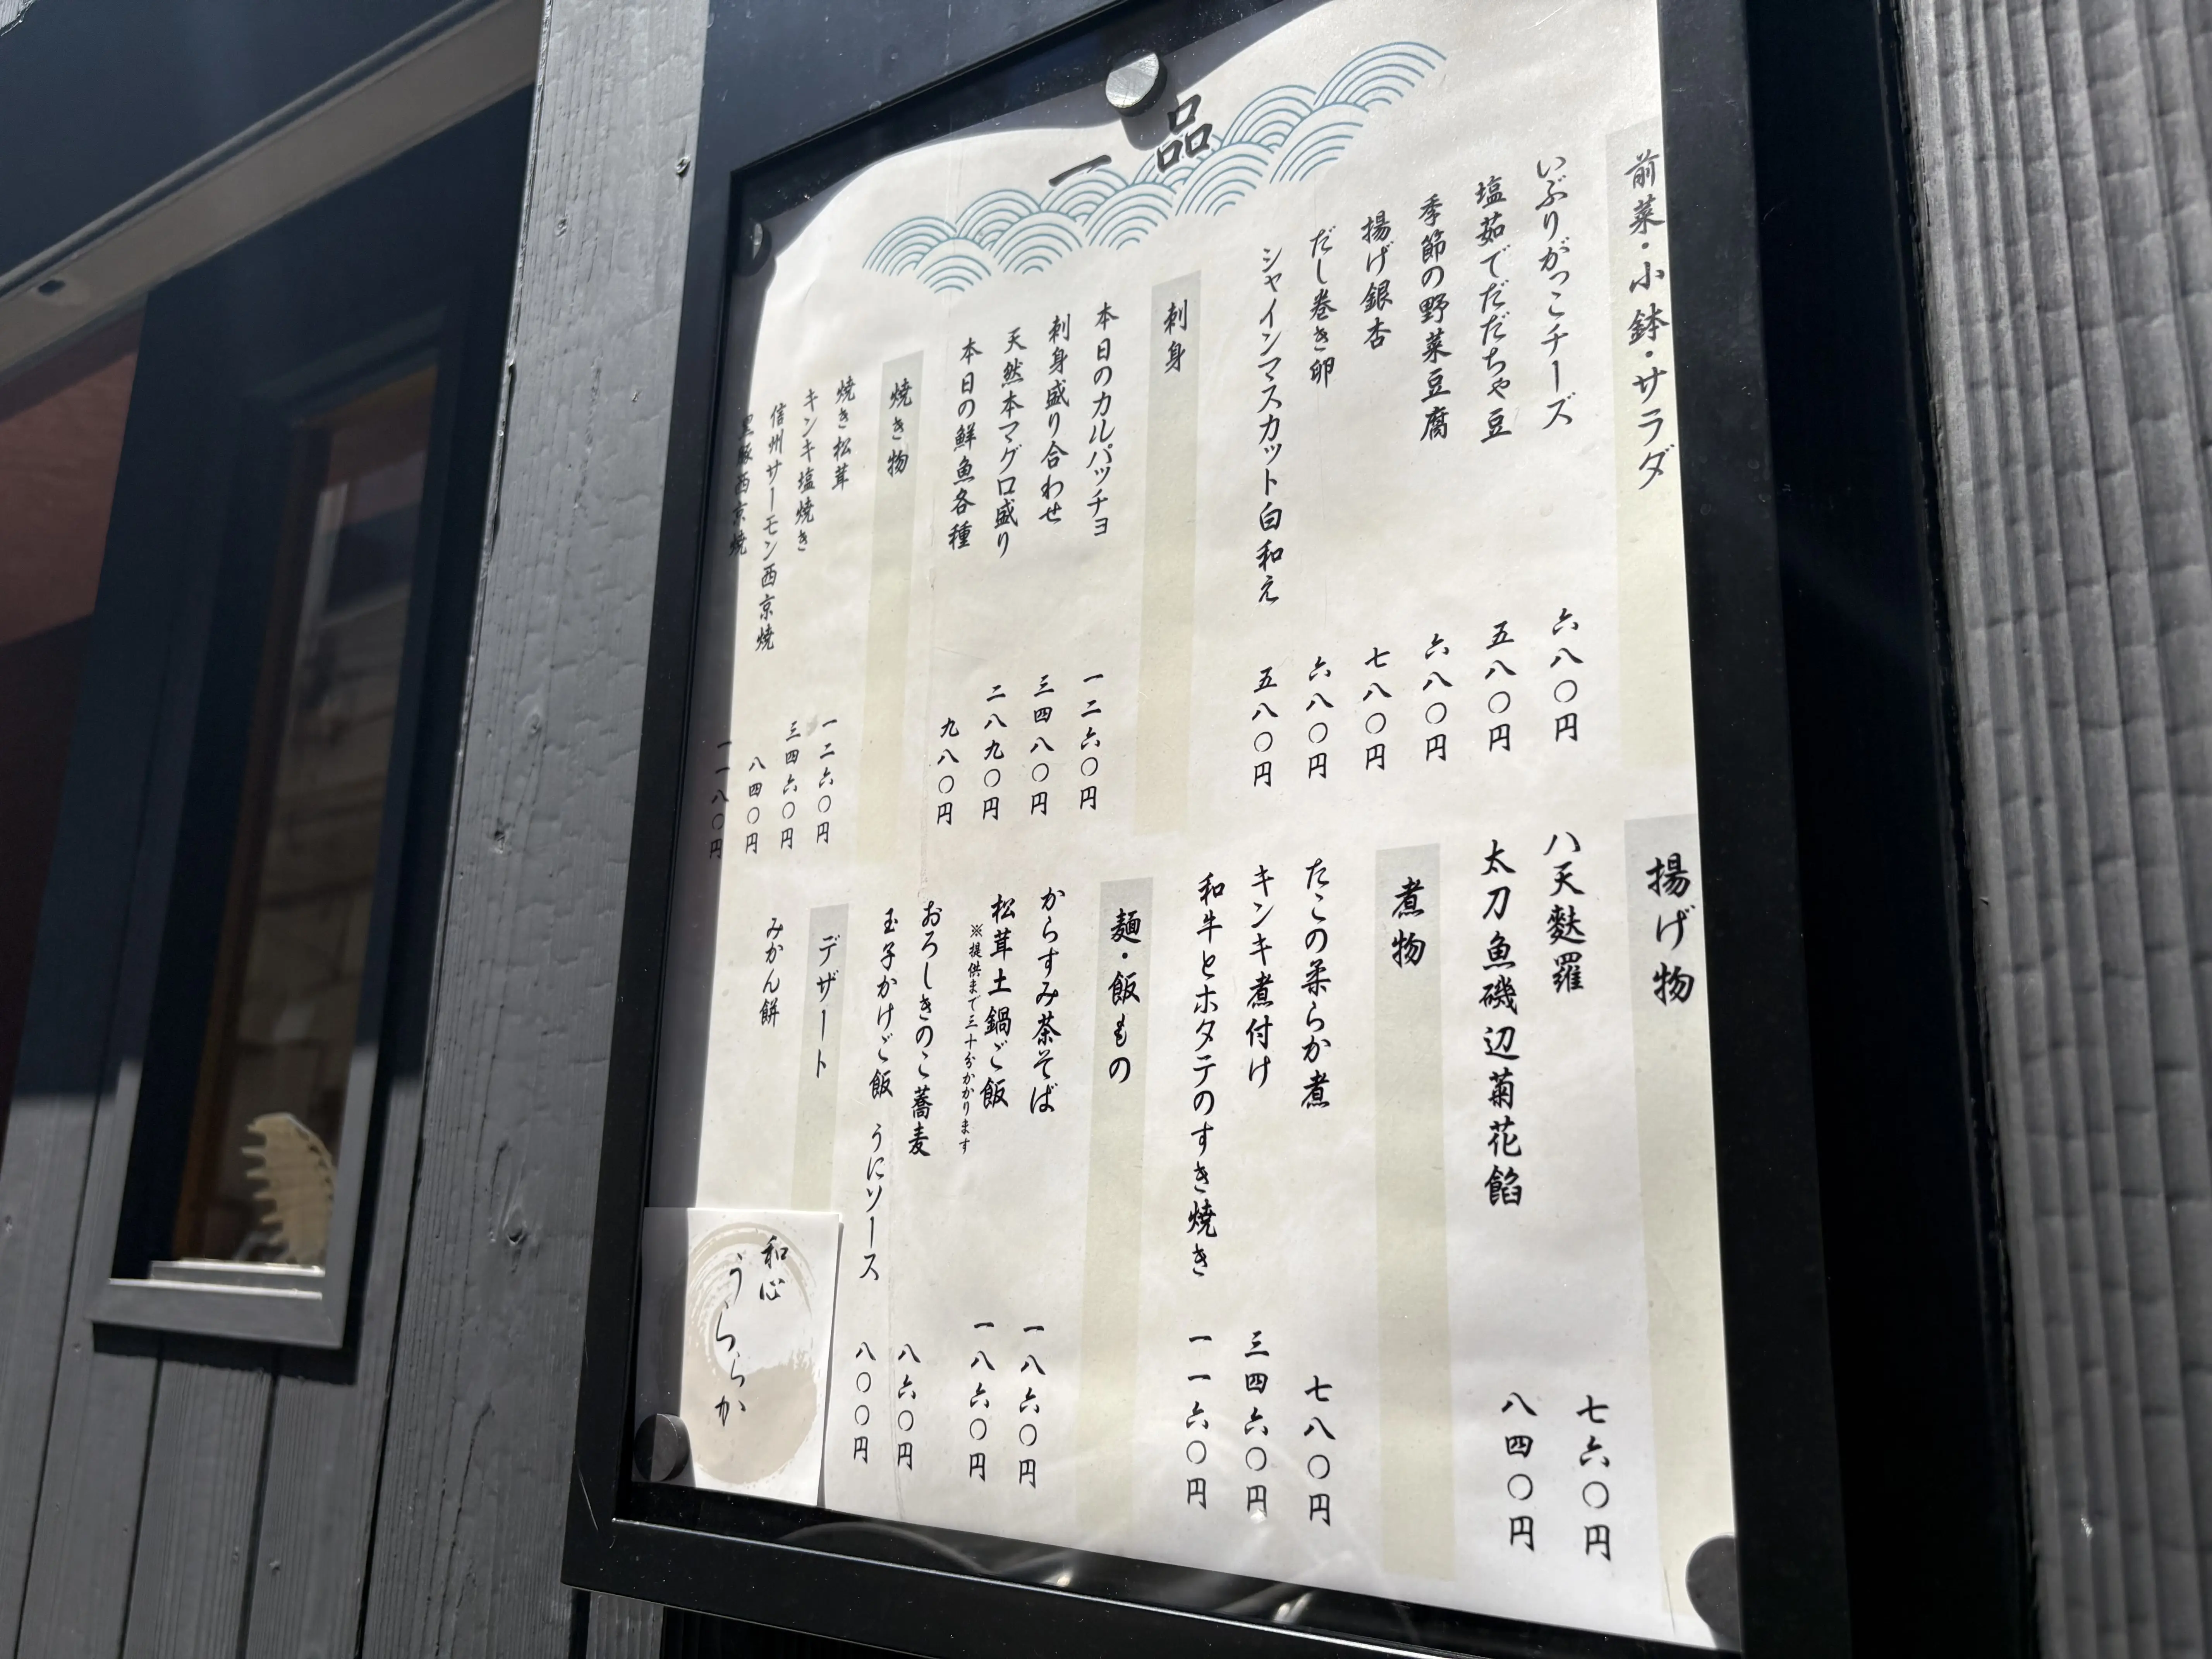 一品
前菜・小鉢・サラダ
いぶりがっこチーズ 六八〇円
塩茹でだだちゃ豆 五八〇円
季節の野菜豆腐 六八〇円
揚げ銀杏 七八〇円
だし巻き卵 六八〇円
シャインマスカット白和え 五八〇円
刺身
本日のカルパッチョ 一二六〇円
刺身盛り合わせ 三四八〇円
天然本マグロ盛り 二八九〇円
本日の鮮魚各種 九八〇円
焼き物
焼き松茸 一二六〇円
キンキ塩焼き 三四六〇円
信州サーモン西京焼 八四〇円
黒豚西京焼 一一八〇円
揚げ物
八天麩羅 七六〇円
太刀魚磯辺菊花餡 八四〇円
煮物
たこの柔らか煮 七八〇円
キンキ煮付け 三四六〇円
和牛とホタテのすき焼き 一一六〇円
麺・飯もの
からすみ茶そば 一八六〇円
松茸土鍋ご飯 一八六〇円
※提供まで三十分かかります
おろしきのこ蕎麦 八六〇円
玉子かけご飯 うにソース 八〇〇円
デザート
みかん餅
和心
うららか